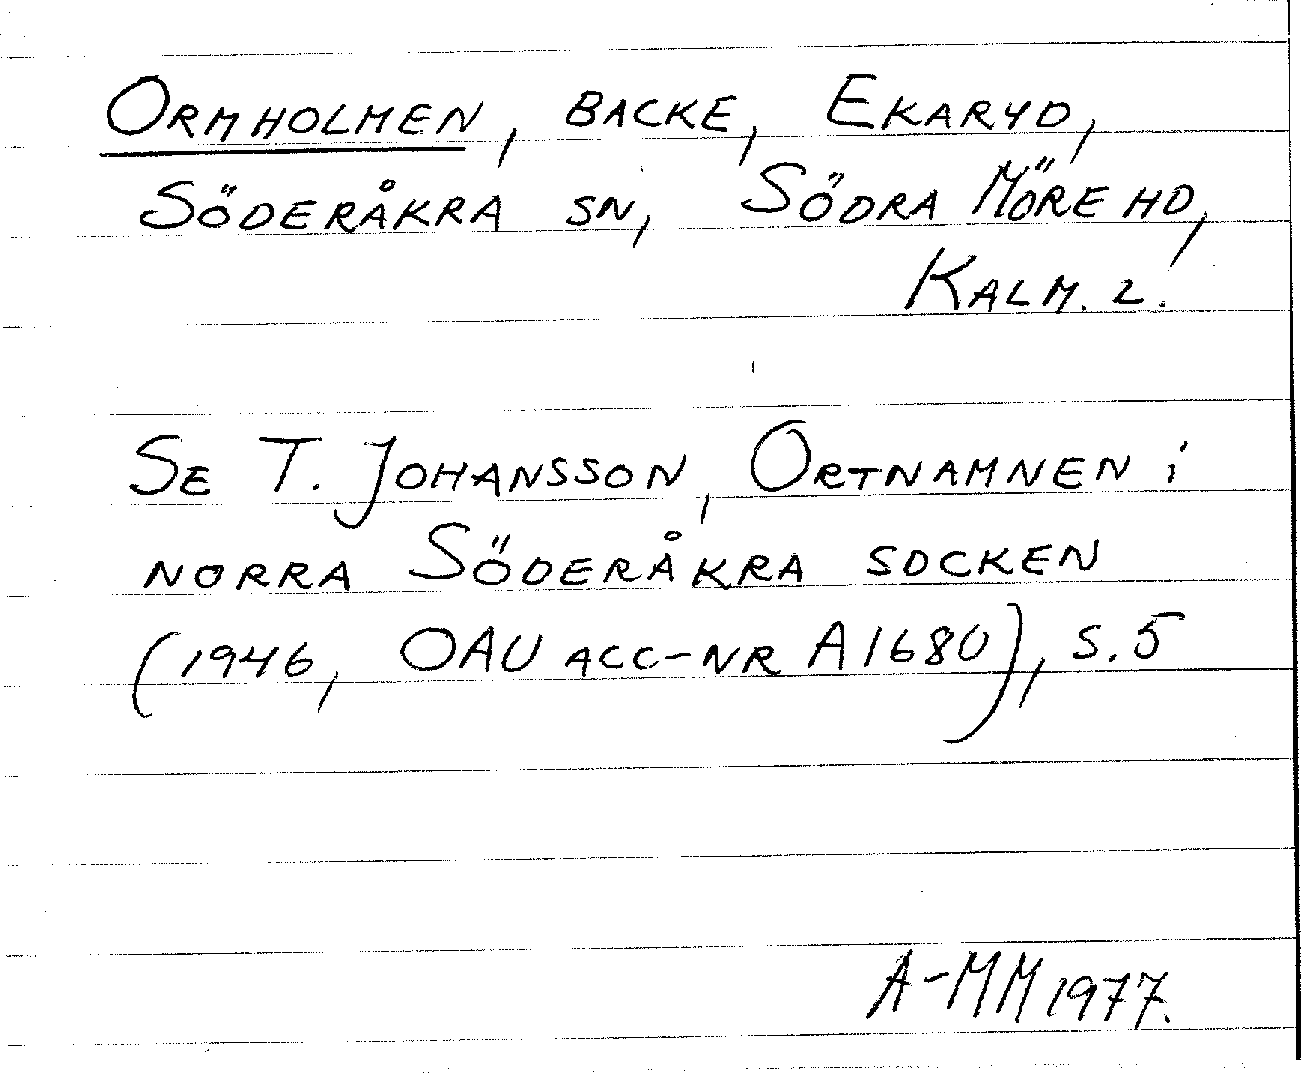 ORMHOLMEN, BACKE, EKARYD,
SÖDERÅKRA SN, SÖDRA MÖRE HD,
KALM. L.
SE T. JOHANSSON, ORTNAMNEN i
NORRA SÖDERÅKRA SOCKEN
(1946, OAU ACC-NR A1680), S. 5
A-MM 1977.